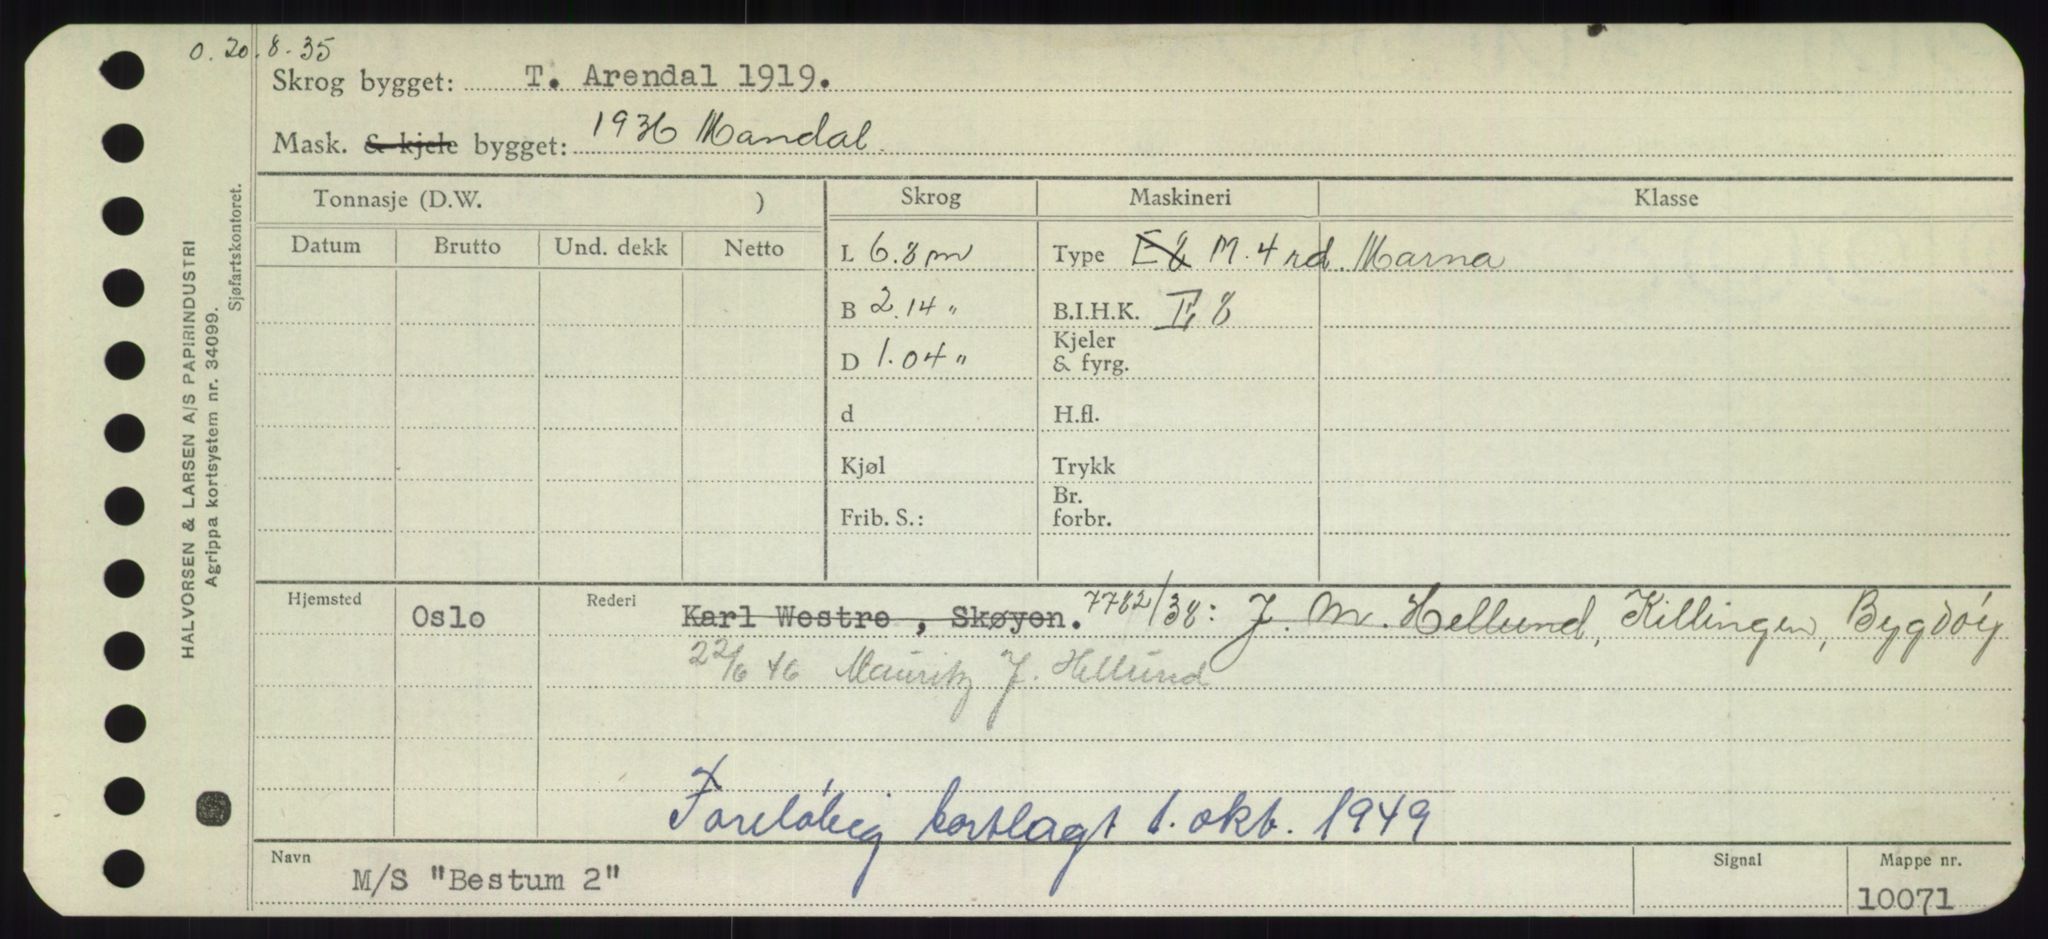 O. 20.8.35
Skrog bygget: T. Arendal 1919.
Mask. & kjele bygget: 1936 Mandal.
HALVORSEN & LARSEN A/S PAPIRINDUSTRI
Agrippa kortsystem nr. 34099.
Sjøfartskontoret.
Tonnasje (D.W. ) Skrog Maskineri Klasse
Datum Brutto Und. dekk Netto
L 6.8 m Type E 8 M. 4 rd. Marna
B 2.14 " B.I.H.K. E 8
D 1.04 " Kjeler & fyrg.
d H.fl.
Kjøl Trykk
Frib. S.: Br. forbr.
Hjemsted Oslo Rederi Karl Westre, Skøyen. 7782/38: J. M. Hellund, Killingen, Bygdöy
22/6 46 Mauritz J. Hellund
Foreløbig bortlagt 1. okt. 1949
Navn M/S "Bestum 2" Signal Mappe nr. 10071